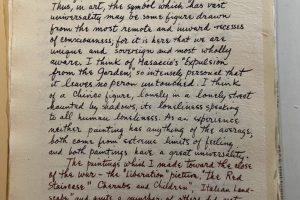 Thus, in art, the symbol which has vast
universality may be some figure drawn
from the most remote and inward recesses
of consciousness; for it is here that we are
unique and sovereign and most wholly
aware. I think of Masaccio's "Expulsion
from the Garden", so intensely personal that
it leaves no person untouched. I think
of a Chirico figure, lonely in a lonely street
haunted by shadows; its loneliness speaking
to all human loneliness. As an experience
neither painting has anything of the average;
both come from extreme limits of feeling
and both paintings have a great universality.
The paintings which I made toward the close
of the war - the "Liberation" picture, "The Red
Stairway" "Cherubs and Children", "Italian Land-
scape" and quite a number of others did not